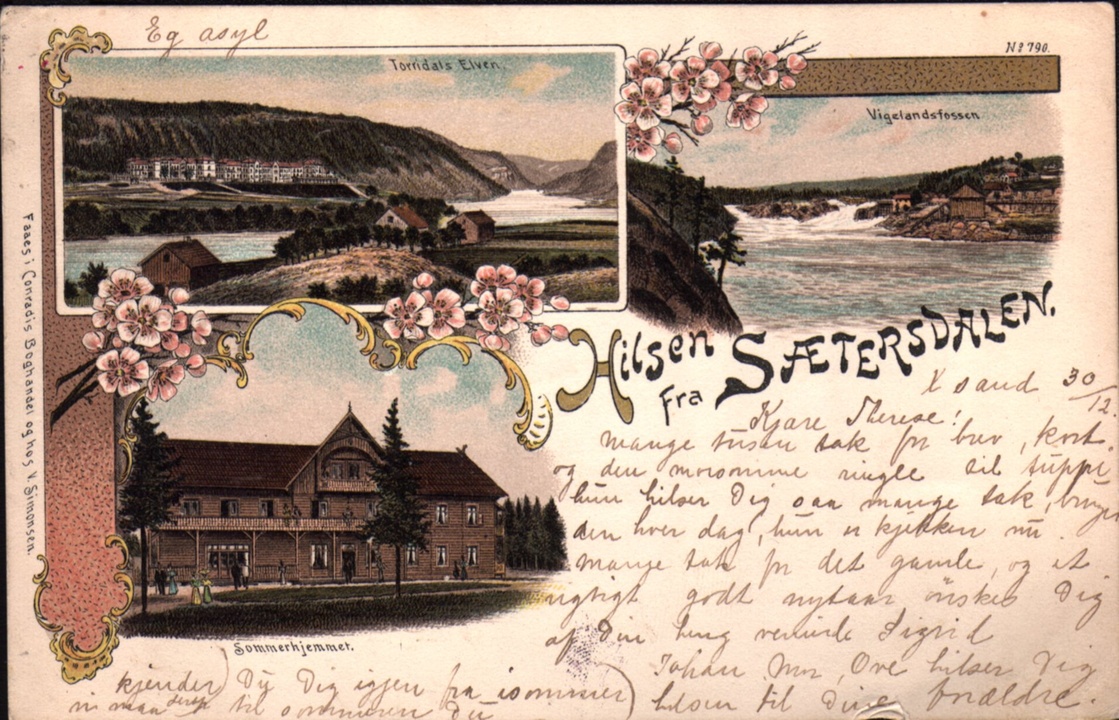 Eg asyl
Torridals Elven.
No 790.
Vigelandsfossen
Hilsen
fra SÆTERSDALEN.
Faaes i Conradis Boghandel og hos V. Simonsen.
Sommerhjemmet.
X sand 30/12
Kjære Therese!
mange tusen tak for brev, kort
og den morsomme ringle til tuppi.
hun hilser Dig saa mange tak, bruger
den hver dag, hun er kjekken nu.
mange tak for det gamle, og et
rigtigt godt nytaar ønskes Dig
af din veninde Sigrid
Johan, Mor, Ove hilser Dig
hilsen til dine forældre.
kjender Du Dig igjen fra isommer)
til sommeren Du